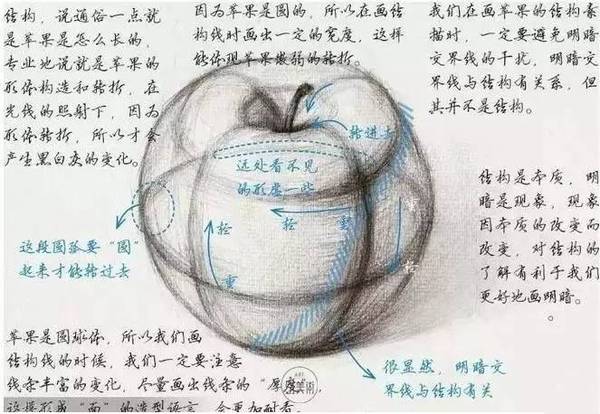 结构，说通俗一点就
是苹果是怎么长的，
专业地说就是苹果的
形体构造和转折，在
光线的照射下，因为
形体转折，所以才会
产生黑白灰的变化。
因为苹果是圆的，所以在画结
构线时画出一定的宽度，这样
能体现苹果微弱的转折。
我们在画苹果的结构素
描时，一定要避免明暗
交界线的干扰，明暗交
界线与结构有关系，但
其并不是结构。
转进去
远处看不见
的形虚一些
轻
轻
重
轻
重
这段圆弧要“圆”
起来才能转过去
结构是本质，明
暗是现象，现象
因本质的改变而
改变，对结构的
了解有利于我们
更好地画明暗。
苹果是圆球体，所以我们画
结构线的时候，我们一定要注意
线条丰富的变化，尽量画出线条的“厚度”，
这样形成“面”的造型语言，会更加耐看。
很显然，明暗交
界线与结构有关